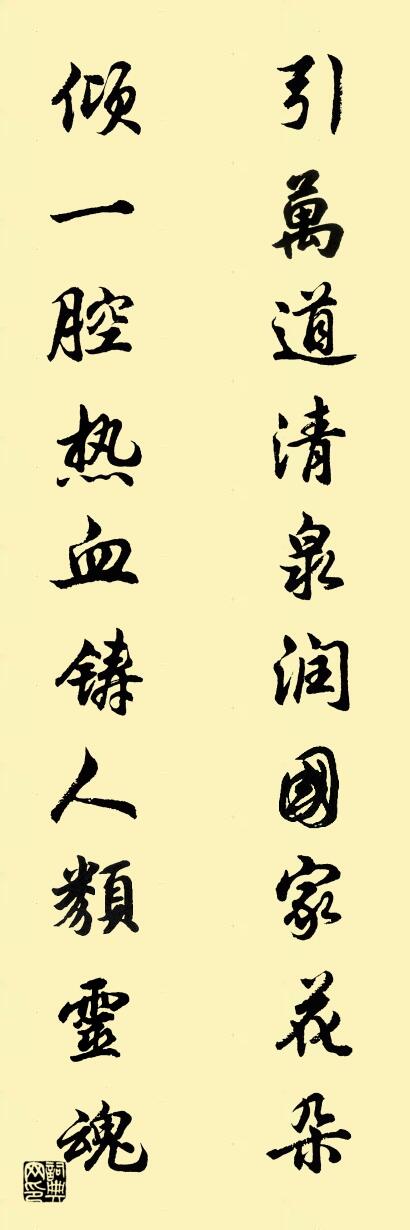 引萬道清泉润國家花朵
倾一腔热血铸人類靈魂
詞典网印